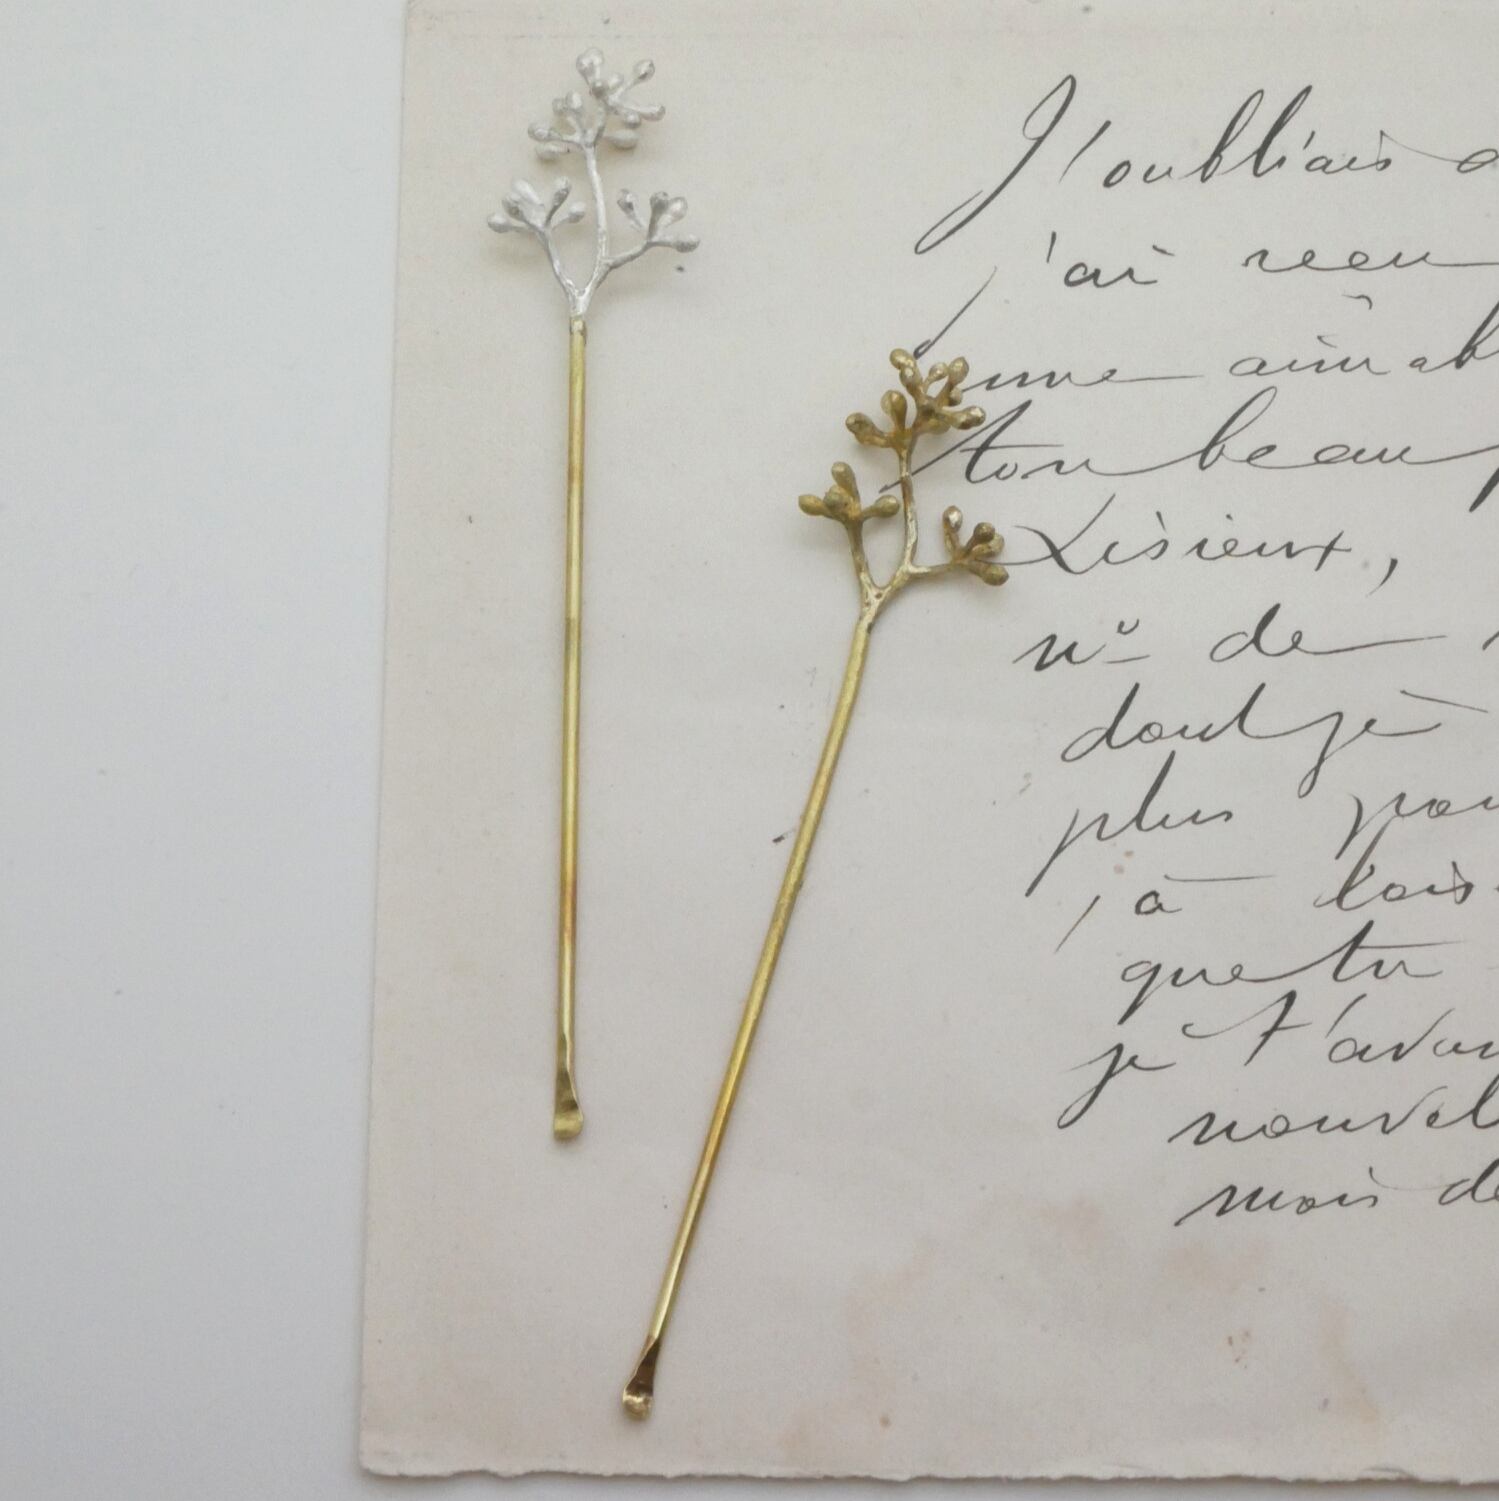 J'oubliais
j'ai recu
une aimab
ton beau
Lisieux,
nº de
dont je
plus pour
à lois
que tu
je t'avan
nouvel
mois de